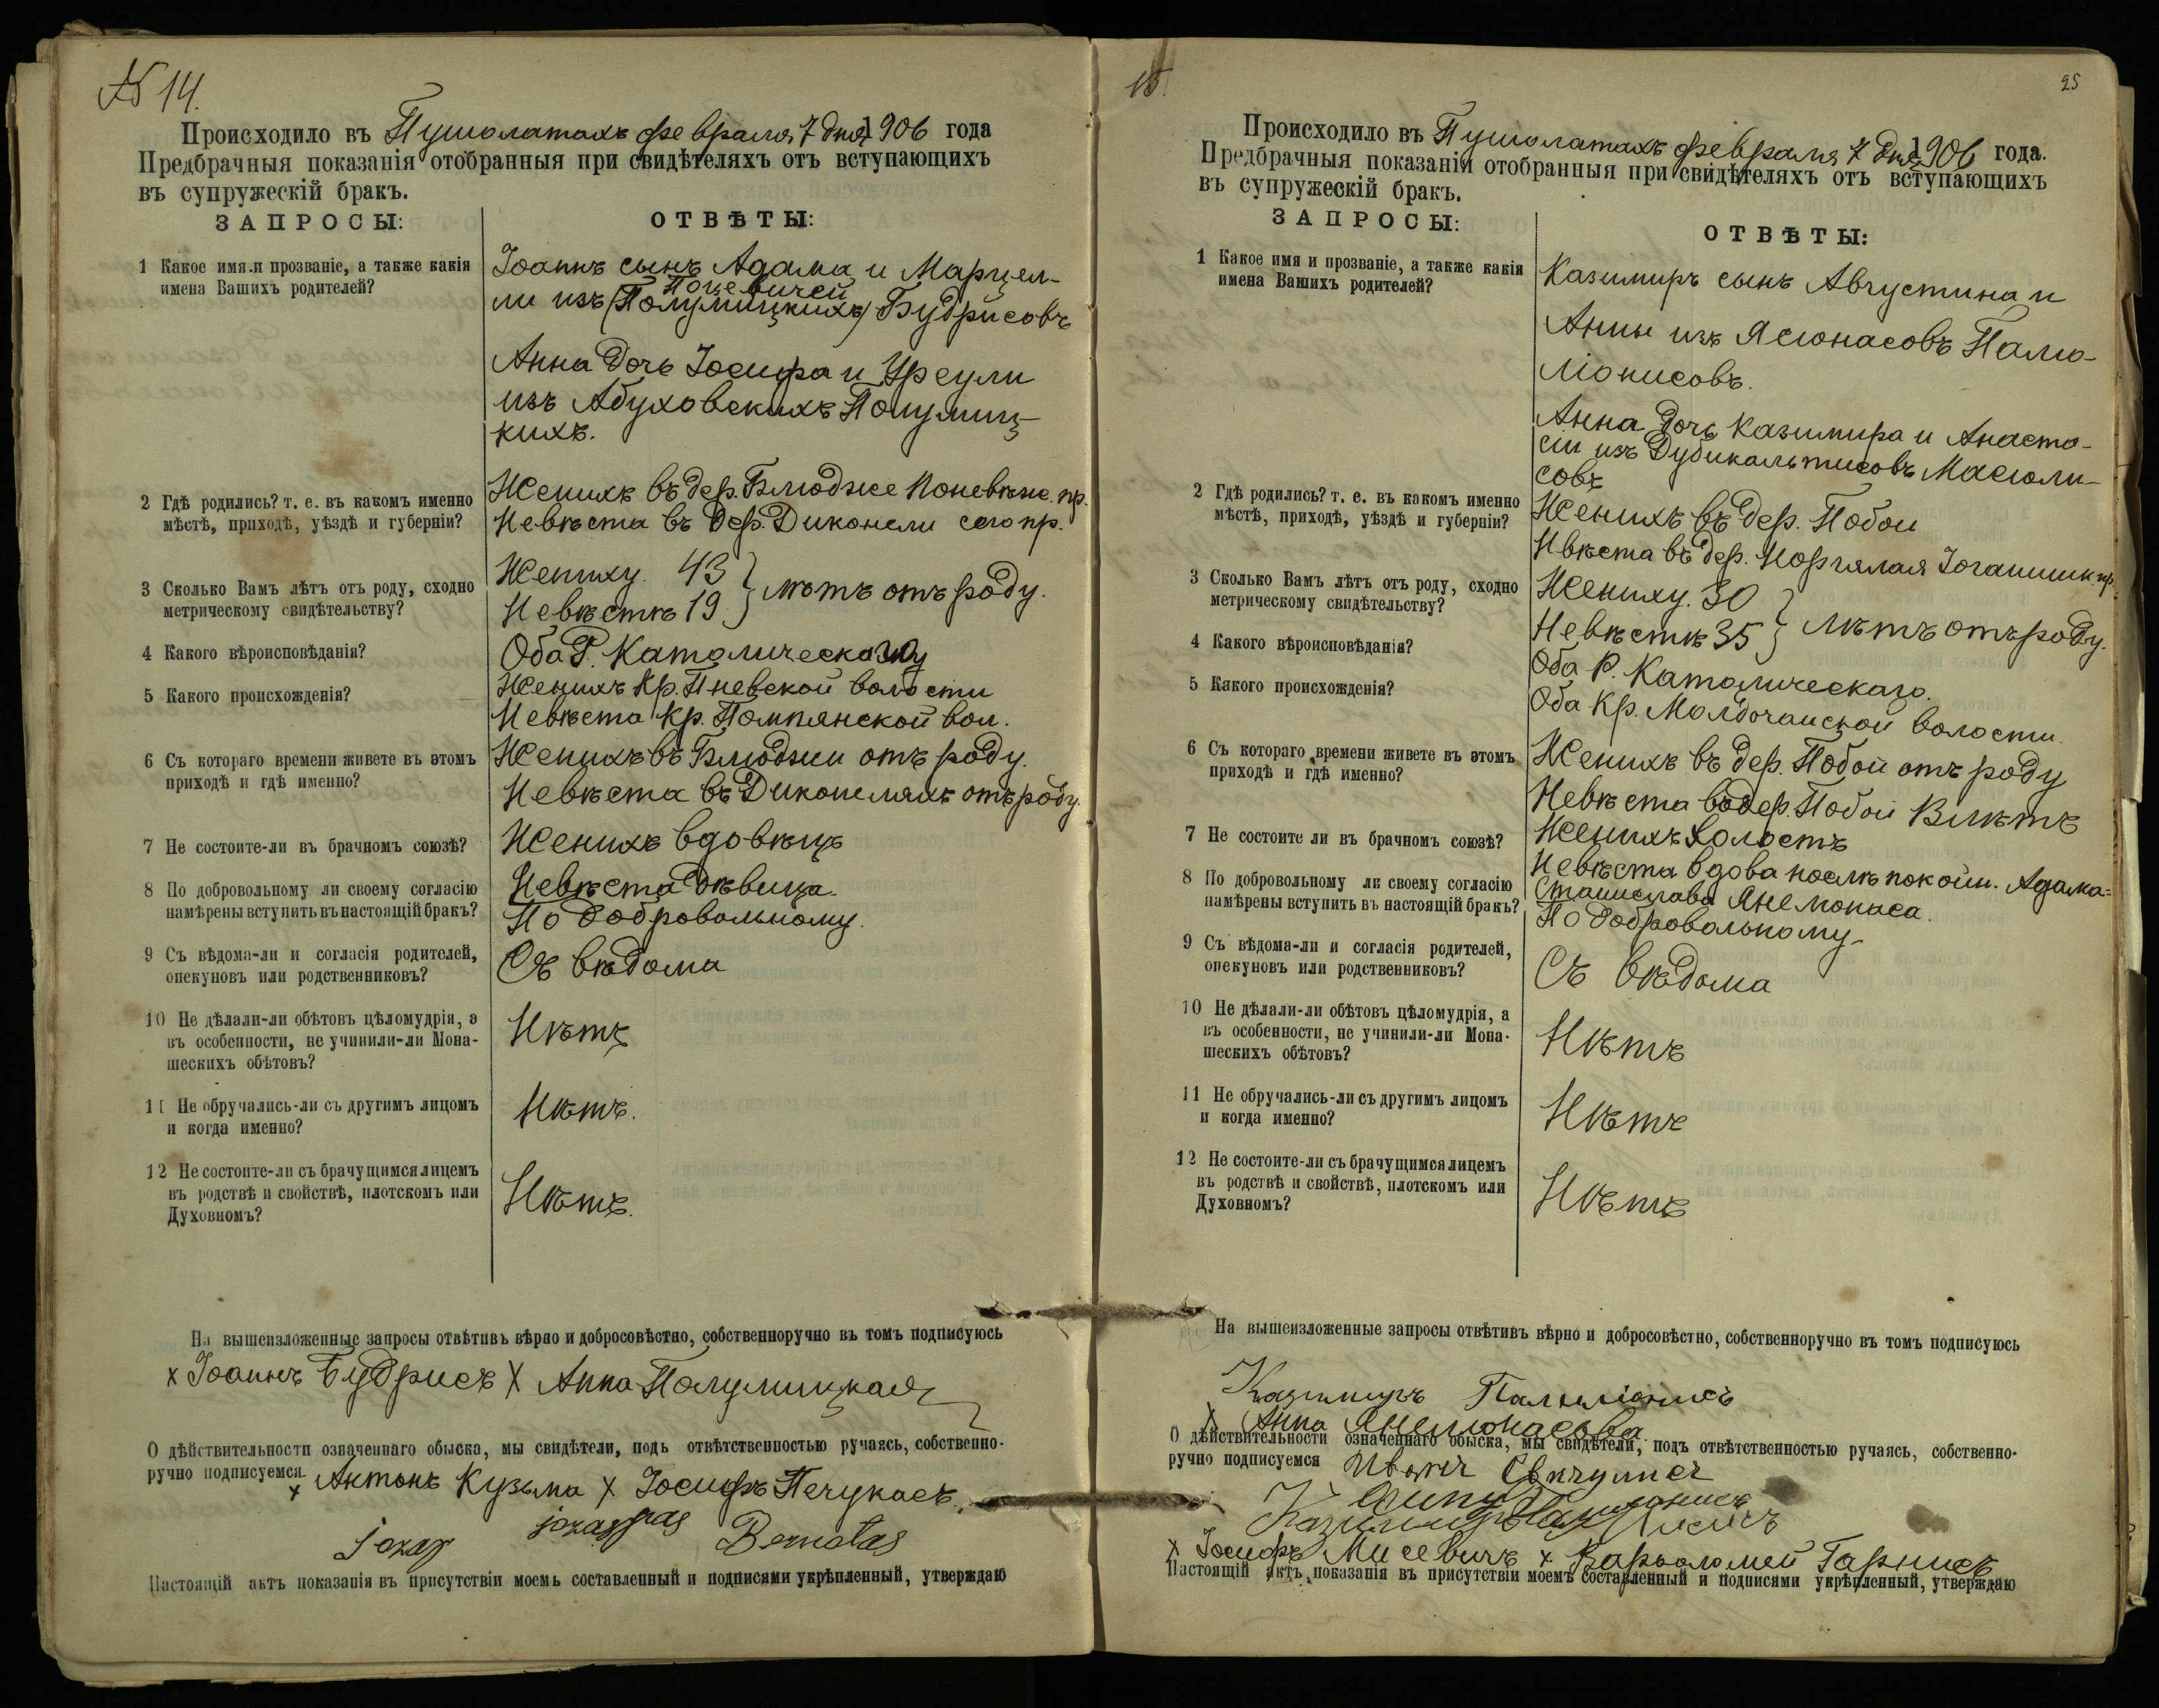 № 14.
Происходило въ Пушолатахъ февраля 7 дня 1906 года
Предбрачныя показанія отобранныя при свидѣтеляхъ отъ вступающихъ
въ супружескій бракъ.
ЗАПРОСЫ:
ОТВѢТЫ:
1 Какое имя и прозваніе, а также какія
имена Вашихъ родителей?
Іоаннъ сынъ Адама и Марцел-
Поцевичей
ли изъ (Полумицкихъ) Будрисовъ
Анна дочь Іосифа и Урсули
изъ Абуховскихъ Полумиц-
кихъ.
2 Гдѣ родились? т. е. въ какомъ именно
мѣстѣ, приходѣ, уѣздѣ и губерніи?
Женихъ въ дер. Блюдже Поневѣж. пр.
Невѣста въ дер. Диконели сего пр.
3 Сколько Вамъ лѣтъ отъ роду, сходно
метрическому свидѣтельству?
Жениху. 43
Невѣстѣ 19 } лѣтъ отъ роду.
4 Какого вѣроисповѣданія?
Оба Р. Католическаго
5 Какого происхожденія?
Женихъ Кр. Пневской волости
Невѣста Кр. Помпянской вол.
6 Съ котораго времени живете въ этомъ
приходѣ и гдѣ именно?
Женихъ въ Блюджи отъ роду.
Невѣста въ Диконеляхъ отъ роду.
7 Не состоите-ли въ брачномъ союзѣ?
Женихъ вдовецъ
Невѣста дѣвица.
8 По добровольному ли своему согласію
намѣрены вступить въ настоящій бракъ?
По добровольному.
9 Съ вѣдома-ли и согласія родителей,
опекуновъ или родственниковъ?
Съ вѣдома
10 Не дѣлали-ли обѣтовъ цѣломудрія, а
въ особенности, не учинили-ли Мона-
шескихъ обѣтовъ?
Нѣтъ
11 Не обручались-ли съ другимъ лицомъ
и когда именно?
Нѣтъ.
12 Не состоите-ли съ брачущимся лицемъ
въ родствѣ и свойствѣ, плотскомъ или
Духовномъ?
Нѣтъ.
На вышеизложенные запросы отвѣтивъ вѣрно и добросовѣстно, собственноручно въ томъ подписуюсь
x Іоаннъ Будрисъ X Анна Полумицкая
О дѣйствительности означеннаго обыска, мы свидѣтели, подъ отвѣтственностью ручаясь, собственно-
ручно подписуемся x Антонъ Кузьма X Іосифъ Печукасъ.
Bernatas
Настоящій актъ показанія въ присутствіи моемъ составленный и подписями укрѣпленный, утверждаю
15.
25
Происходило въ Пушолатахъ февраля 7 дня 1906 года.
Предбрачныя показанія отобранныя при свидѣтеляхъ отъ вступающихъ
въ супружескій бракъ.
ЗАПРОСЫ:
ОТВѢТЫ:
1 Какое имя и прозваніе, а также какія
имена Вашихъ родителей?
Казимиръ сынъ Августина и
Анны изъ Ясюнасовъ Палю-
ліонисовъ.
Анна дочь Казимира и Анаста-
сіи изъ Дубикальтисовъ Масюли-
совъ
2 Гдѣ родились? т. е. въ какомъ именно
мѣстѣ, приходѣ, уѣздѣ и губерніи?
Женихъ въ дер. Побои
Нвѣста въ дер. Іоганишк. пр.
3 Сколько Вамъ лѣтъ отъ роду, сходно
метрическому свидѣтельству?
Жениху. 30
Невѣстѣ 35 } лѣтъ отъ роду.
4 Какого вѣроисповѣданія?
Оба Р. Католическаго.
5 Какого происхожденія?
Оба Кр. волости.
6 Съ котораго времени живете въ этомъ
приходѣ и гдѣ именно?
Женихъ въ дер. Побои отъ роду
Невѣста въ дер. Побои лѣтъ
7 Не состоите ли въ брачномъ союзѣ?
Женихъ холостъ
Невѣста вдова послѣ покойн. Адама-
Станислава Янемонаса.
8 По добровольному ли своему согласію
намѣрены вступить въ настоящій бракъ?
По добровольному.
9 Съ вѣдома-ли и согласія родителей,
опекуновъ или родственниковъ?
Съ вѣдома
10 Не дѣлали-ли обѣтовъ цѣломудрія, а
въ особенности, не учинили-ли Мона-
шескихъ обѣтовъ?
Нѣтъ
11 Не обручались-ли съ другимъ лицомъ
и когда именно?
Нѣтъ
12 Не состоите-ли съ брачущимся лицемъ
въ родствѣ и свойствѣ, плотскомъ или
Духовномъ?
Нѣтъ
На вышеизложенные запросы отвѣтивъ вѣрно и добросовѣстно, собственноручно въ томъ подписуюсь
Казимиръ
X Анна Янемонасова
О дѣйствительности означеннаго обыска, мы свидѣтели, подъ отвѣтственностью ручаясь, собственно-
ручно подписуемся
x Іосифъ Мисевичъ x Варѳоломей Гарнисъ
Настоящій актъ показанія въ присутствіи моемъ составленный и подписями укрѣпленный, утверждаю